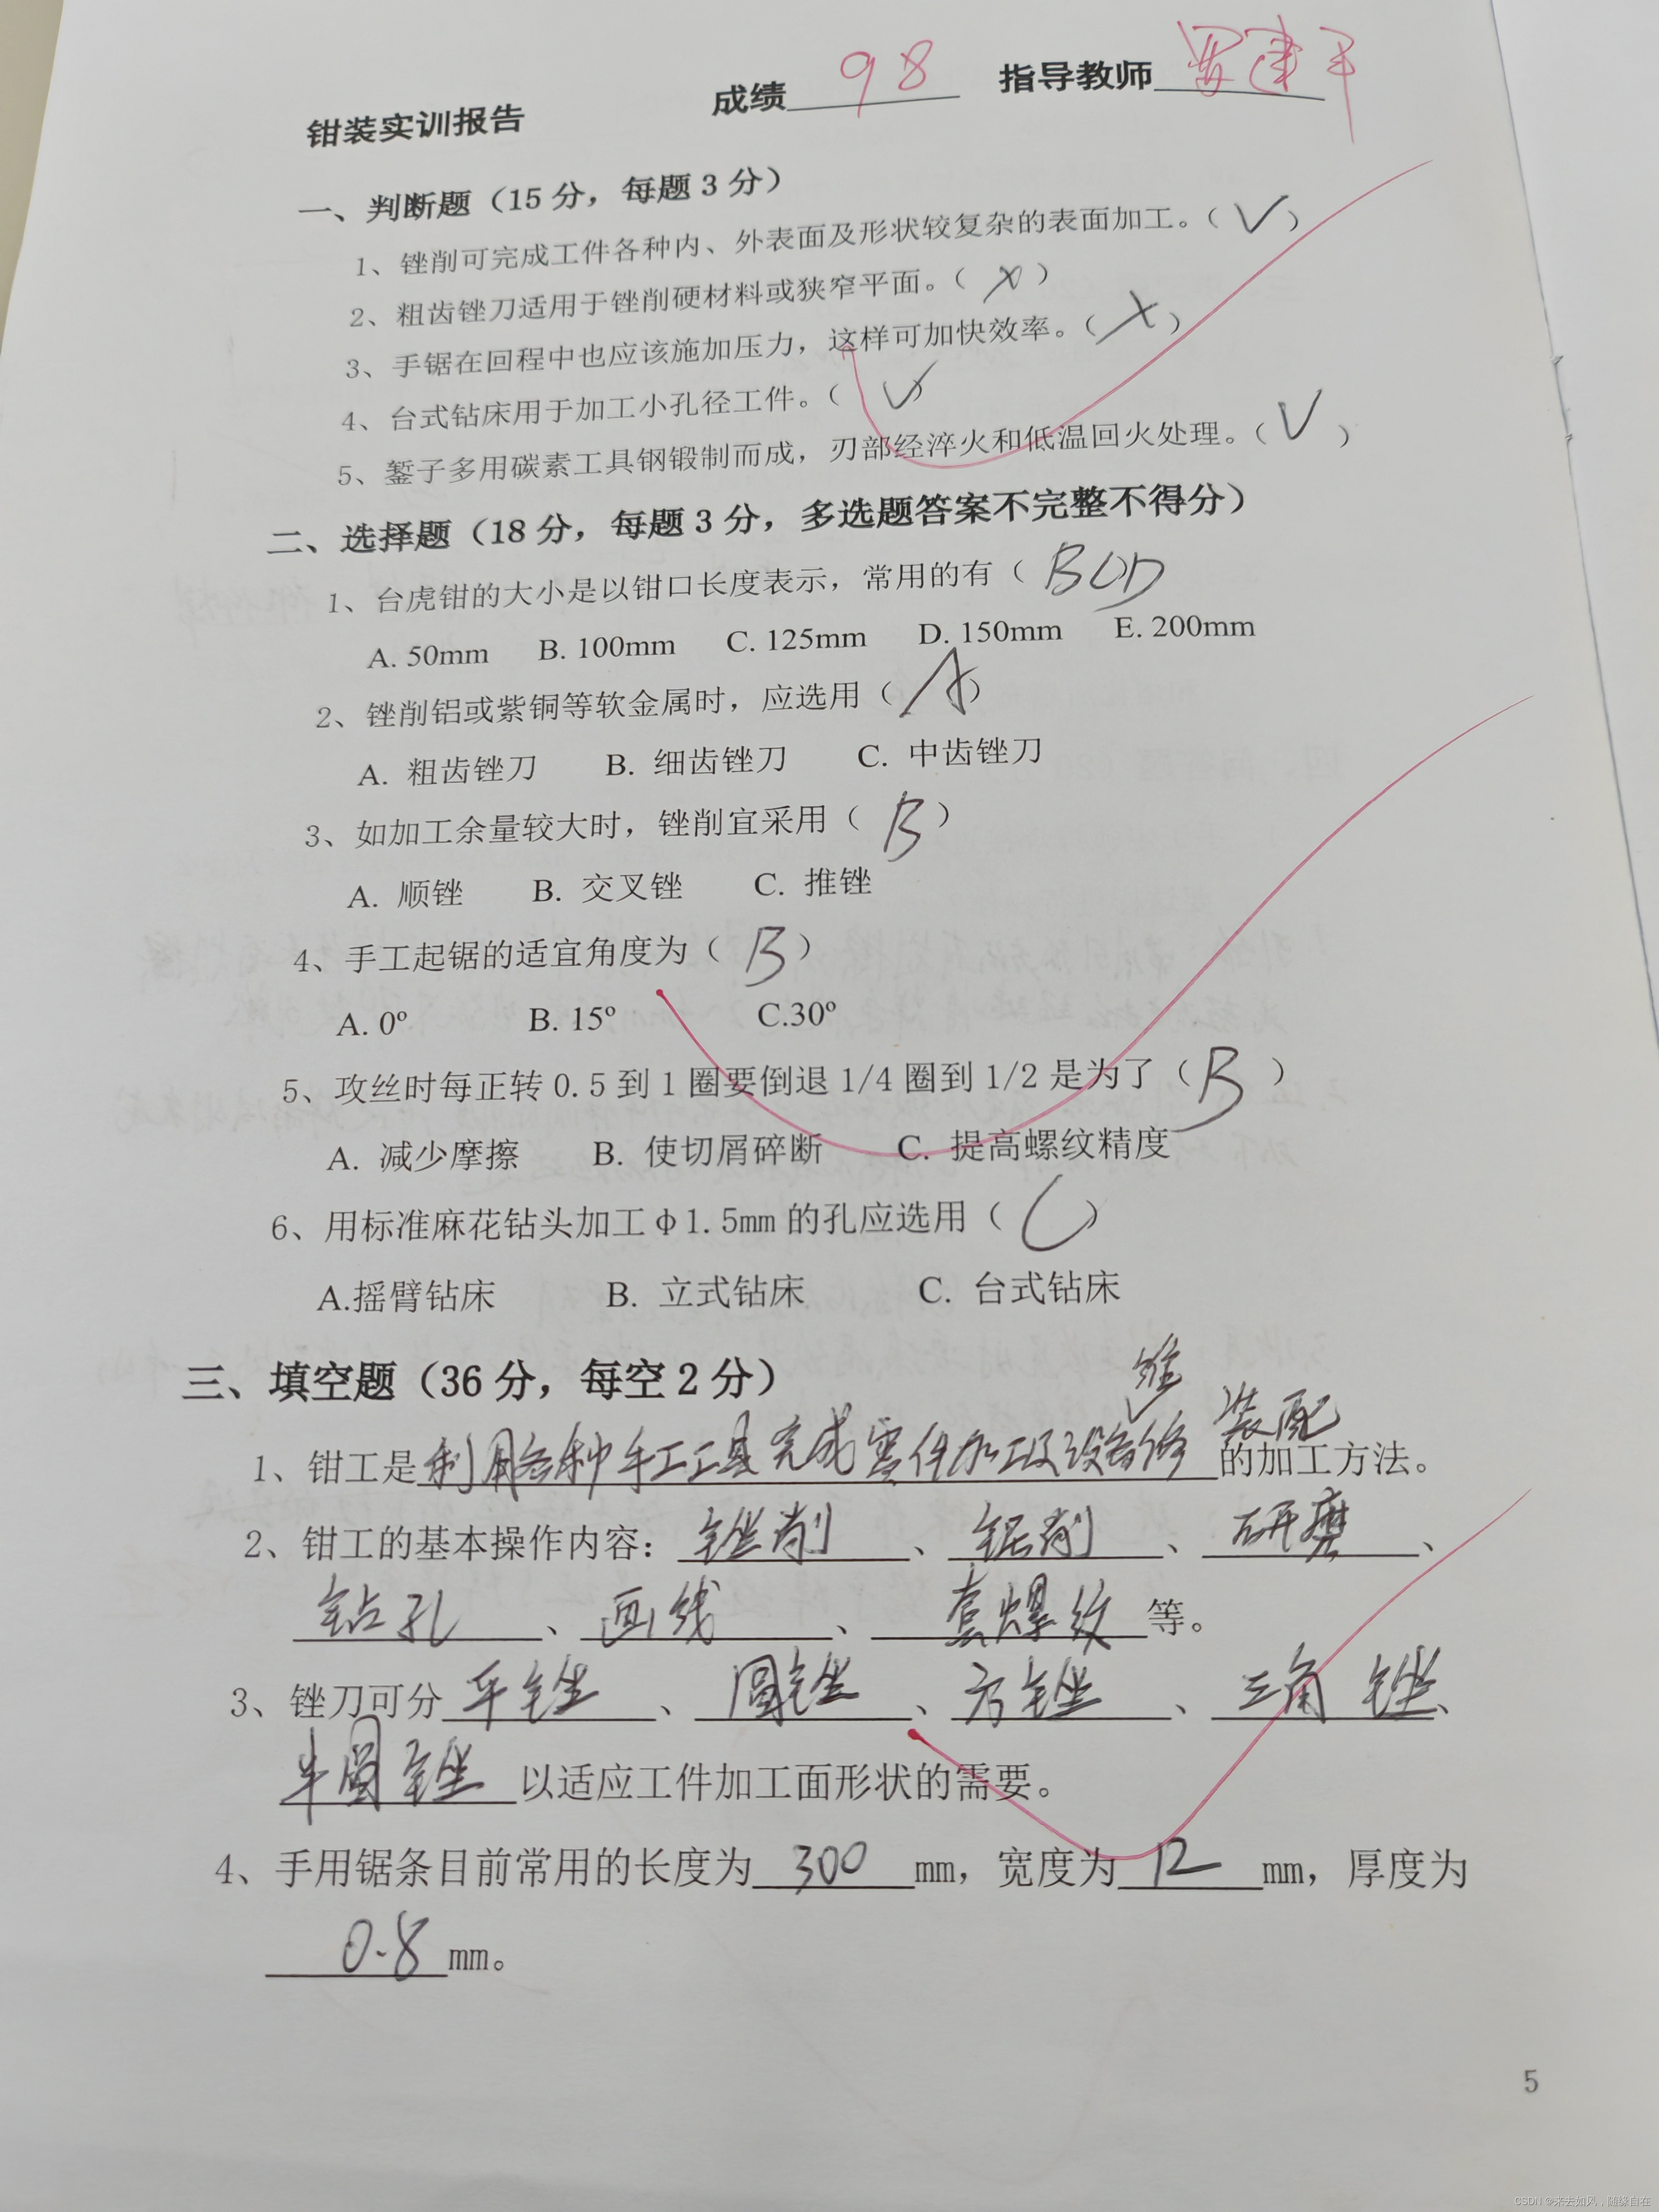 钳装实训报告 成绩 98 指导教师
一、判断题（15分，每题3分）
1、锉削可完成工件各种内、外表面及形状较复杂的表面加工。（ √ ）
2、粗齿锉刀适用于锉削硬材料或狭窄平面。（ × ）
3、手锯在回程中也应该施加压力，这样可加快效率。（ × ）
4、台式钻床用于加工小孔径工件。（ √ ）
5、錾子多用碳素工具钢锻制而成，刃部经淬火和低温回火处理。（ √ ）
二、选择题（18分，每题3分，多选题答案不完整不得分）
1、台虎钳的大小是以钳口长度表示，常用的有（ BCD
A. 50mm B. 100mm C. 125mm D. 150mm E. 200mm
2、锉削铝或紫铜等软金属时，应选用（ A ）
A. 粗齿锉刀 B. 细齿锉刀 C. 中齿锉刀
3、如加工余量较大时，锉削宜采用（ B ）
A. 顺锉 B. 交叉锉 C. 推锉
4、手工起锯的适宜角度为（ B ）
A. 0º B. 15º C.30º
5、攻丝时每正转0.5到1圈要倒退1/4圈到1/2是为了（ B ）
A. 减少摩擦 B. 使切屑碎断 C. 提高螺纹精度
6、用标准麻花钻头加工φ1.5mm的孔应选用（ C ）
A.摇臂钻床 B. 立式钻床 C. 台式钻床
三、填空题（36分，每空2分）
1、钳工是利用各种手工工具完成零件加工及设备维修装配的加工方法。
2、钳工的基本操作内容：锉削、锯削、研磨、
钻孔、画线、套螺纹等。
3、锉刀可分平锉、圆锉、方锉、三角锉、
半圆锉以适应工件加工面形状的需要。
4、手用锯条目前常用的长度为 300 mm，宽度为 12 mm，厚度为
0.8 mm。
5
CSDN @来去如风，随缘自在